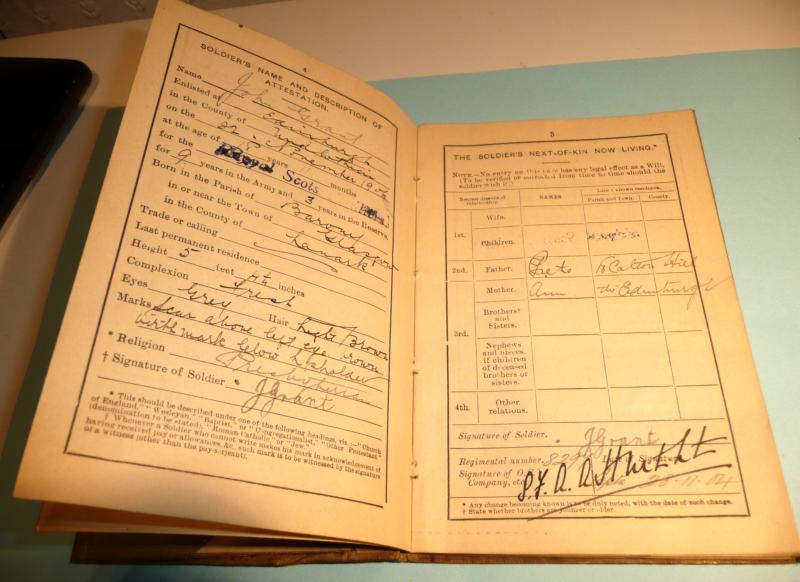 4
SOLDIER'S NAME AND DESCRIPTION OF
ATTESTATION.
Name John Grant
Enlisted at Edinburgh
in the County of Midlothian
on the November
at the age of years months
for the Royal Scots
for 9 years in the Army and 3 years in the Reserve.
Born in the Parish of Barony
in or near the Town of Glasgow
in the County of Lanark
Trade or calling
Last permanent residence
Height 5 feet inches
Complexion Fresh
Eyes Grey Hair Light Brown
Marks Scar above left eye brown
birth mark below L shoulder
* Religion Presbyterian
† Signature of Soldier JGrant
* This should be described under one of the following headings, viz.:—"Church
of England," "Wesleyan," "Baptist," or "Congregationalist," "Other Protestant"
(denomination to be stated), "Roman Catholic," or "Jew."
† Whenever a Soldier who cannot write makes his mark in acknowledgement of
having received pay or allowances, &c., such mark is to be witnessed by the signature
of a witness (other than the pay-serjeant).
5
THE SOLDIER'S NEXT-OF-KIN NOW LIVING.*
NOTE.—No entry on this page has any legal effect as a Will.
(To be verified or corrected from time to time should the
soldier wish it.)
Second degree of relationship. NAMES. Last known residence.
Parish and Town. County.
1st. Wife.
Children.
2nd. Father. Calton Hill
Mother. Ann do Edinburgh
3rd. Brothers† and Sisters.
Nephews and nieces, if children of deceased brothers or sisters.
4th. Other relations.
Signature of Soldier. JGrant
Regimental number
Signature of O.C.
Company, etc.
* Any change becoming known is to be duly noted, with the date of such change.
† State whether brothers are younger or older.